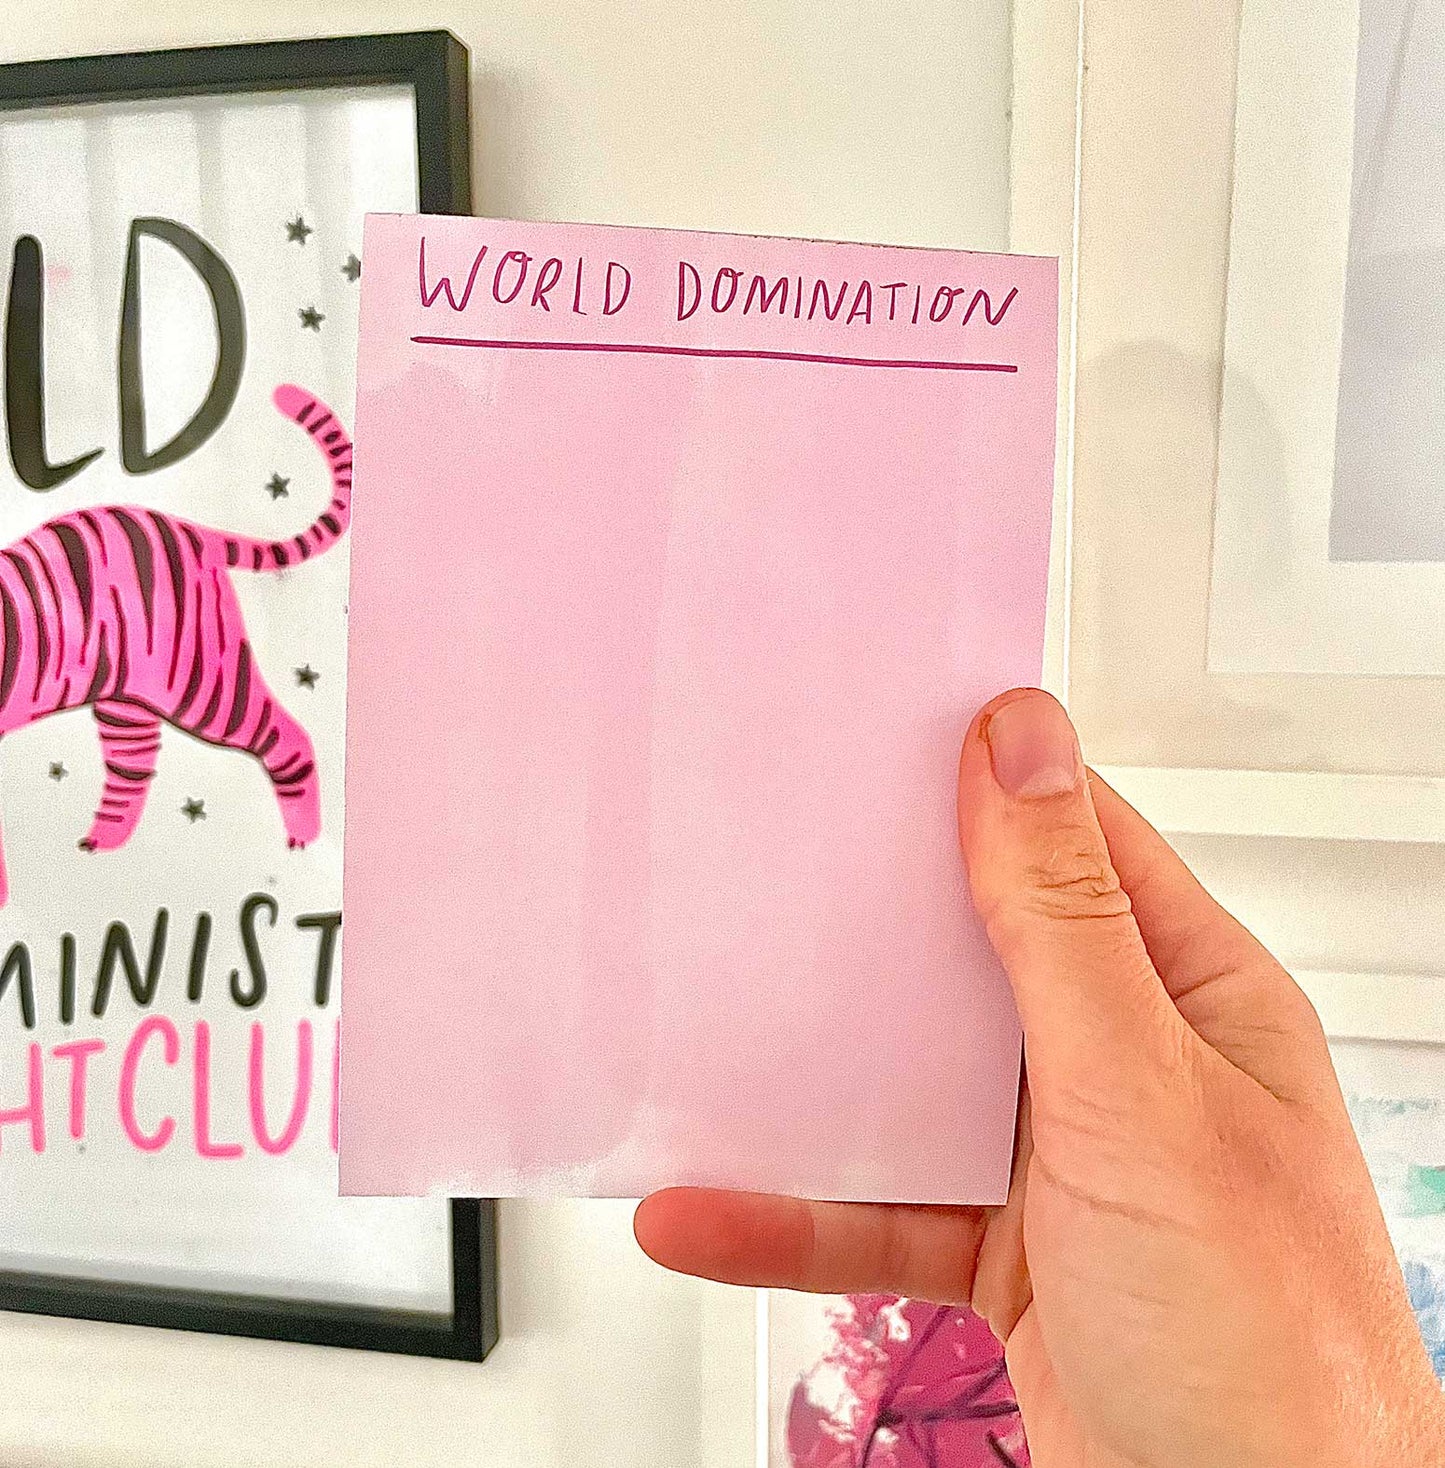 WORLD DOMINATION
LD
MINIST
HTCLU